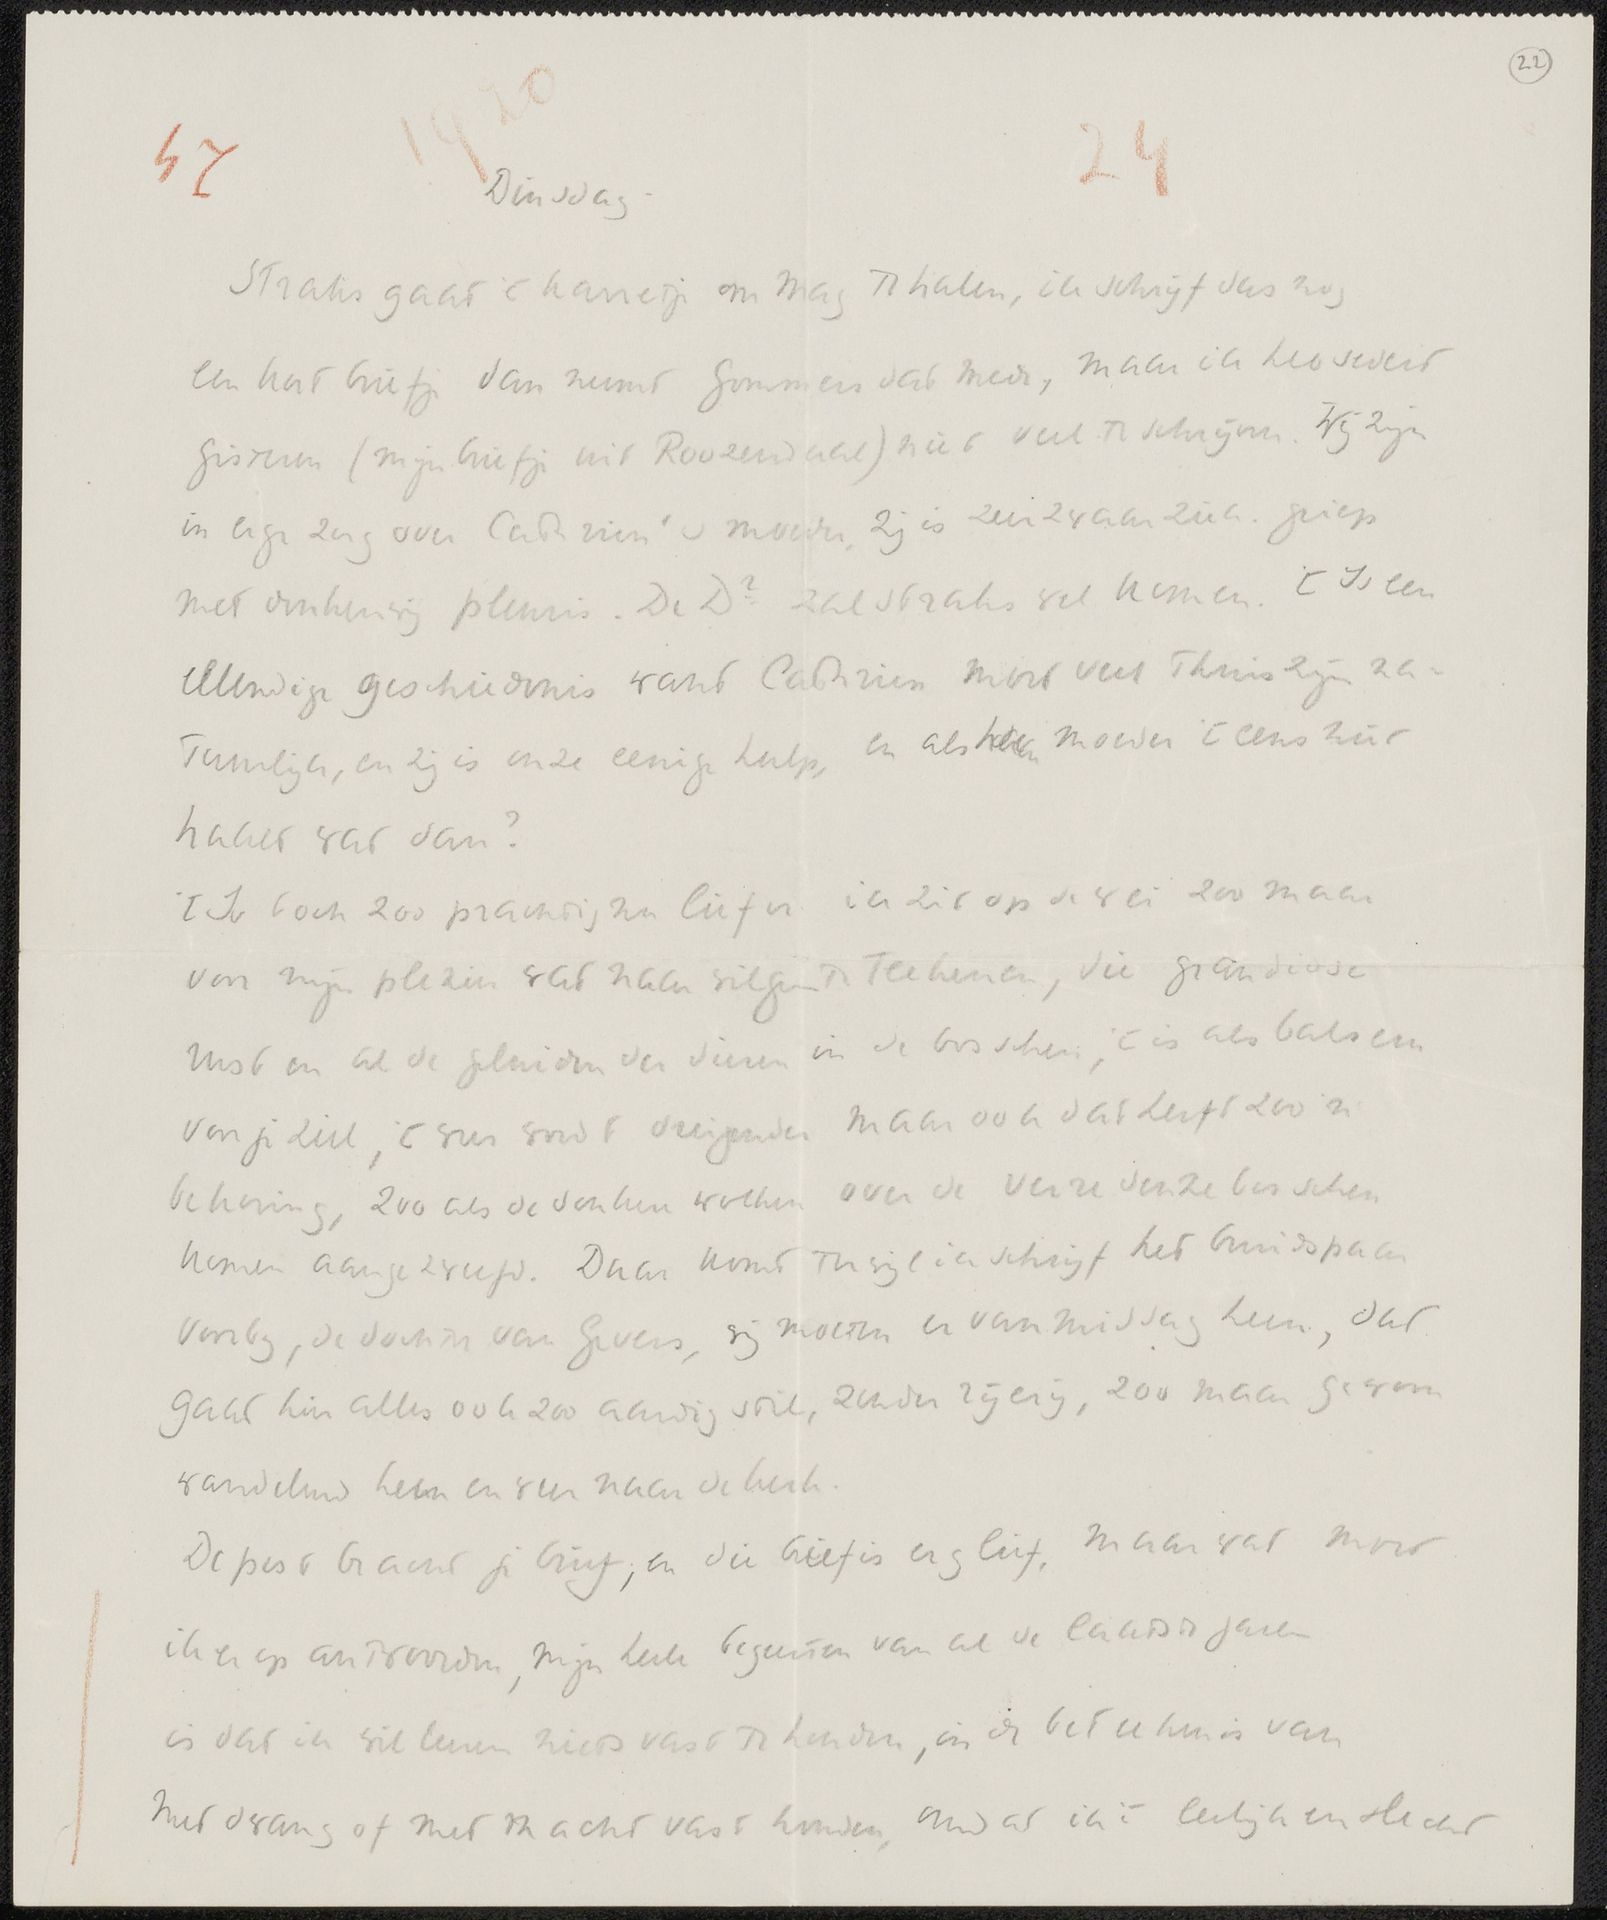 22
47
1920
24
Dinsdag -
Straks gaat 't karretje om Mag te halen, ik schrijf dus nog
een kort briefje dan neemt Gommers dat mede, maar ik heb sedert
gisteren (mijn briefje uit Roozendaal) niet veel te schrijven. Wij zijn
in erge zorg over Cathrien's moeder, zij is zeer zwaar ziek. griep
met pleuris. De Dr zal straks wel komen. 't Is een
ellendige geschiedenis want Cathrien moet veel thuis zijn na-
tuurlijk, en zij is onze eenige hulp, en als haar moeder 't eens niet
haalt wat dan?
't Is toch zoo prachtig nu liefer ik zit op de wei zoo maar
voor mijn plezier wat naar wilgen te teekenen, die grandiose
rust en al de geluiden der dieren in de bosschen, 't is als balsem
voor je ziel, 't weer wordt dreigender maar ook dat heeft zoo'n
bekoring, zoo als de donkere wolken over de verre denne bosschen
komen aangezweefd. Daar komt terwijl ik schrijf het bruidspaar
voorbij, de dochter van Gevers, wij moeten er vanmiddag heen, dat
gaat hier alles ook zoo aardig stil, zonder rijerij, zoo maar gewoon
wandelend heen en weer naar de kerk.
De post bracht je brief, en die brief is erg lief, maar wat moet
ik er op antwoorden, mijn heele begeerten van al de laatste jaren
is dat ik wil leeren niets vast te houden, in de beteekenis van
met dwang of met macht vast houden, omdat ik 't leelijk en slecht